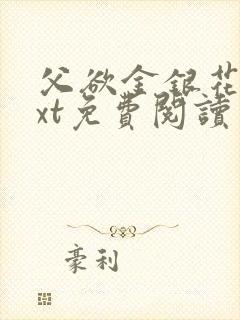 父欲金銀花
xt免費閱讀
豪利